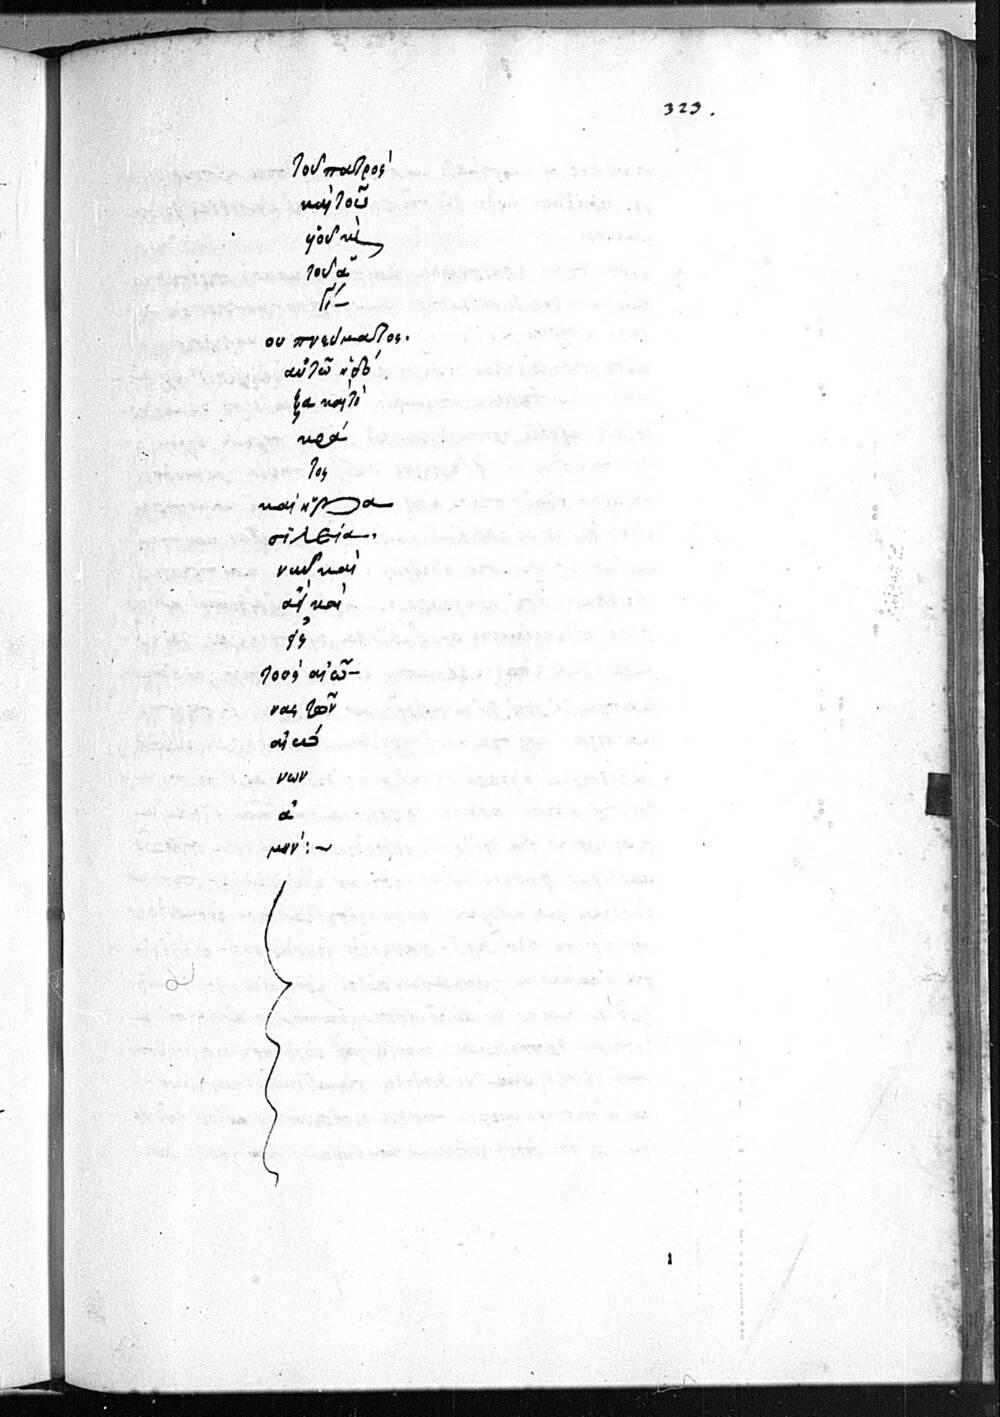 323.
τοῦ πατρὸς
καὶ τοῦ
υἱοῦ κὶ
τοῦ ἁ
γί-
ου πνεύματος.
αὐτῶ ἡ δό
ξα καὶ τὸ
κρά
τος
καὶ ἡ βα
σιλεία.
νῦν καὶ
ἀεὶ καὶ
εἰς
τοὺς αἰῶ-
νας τῶν
αἰώ
νων
ἀ
μήν:~